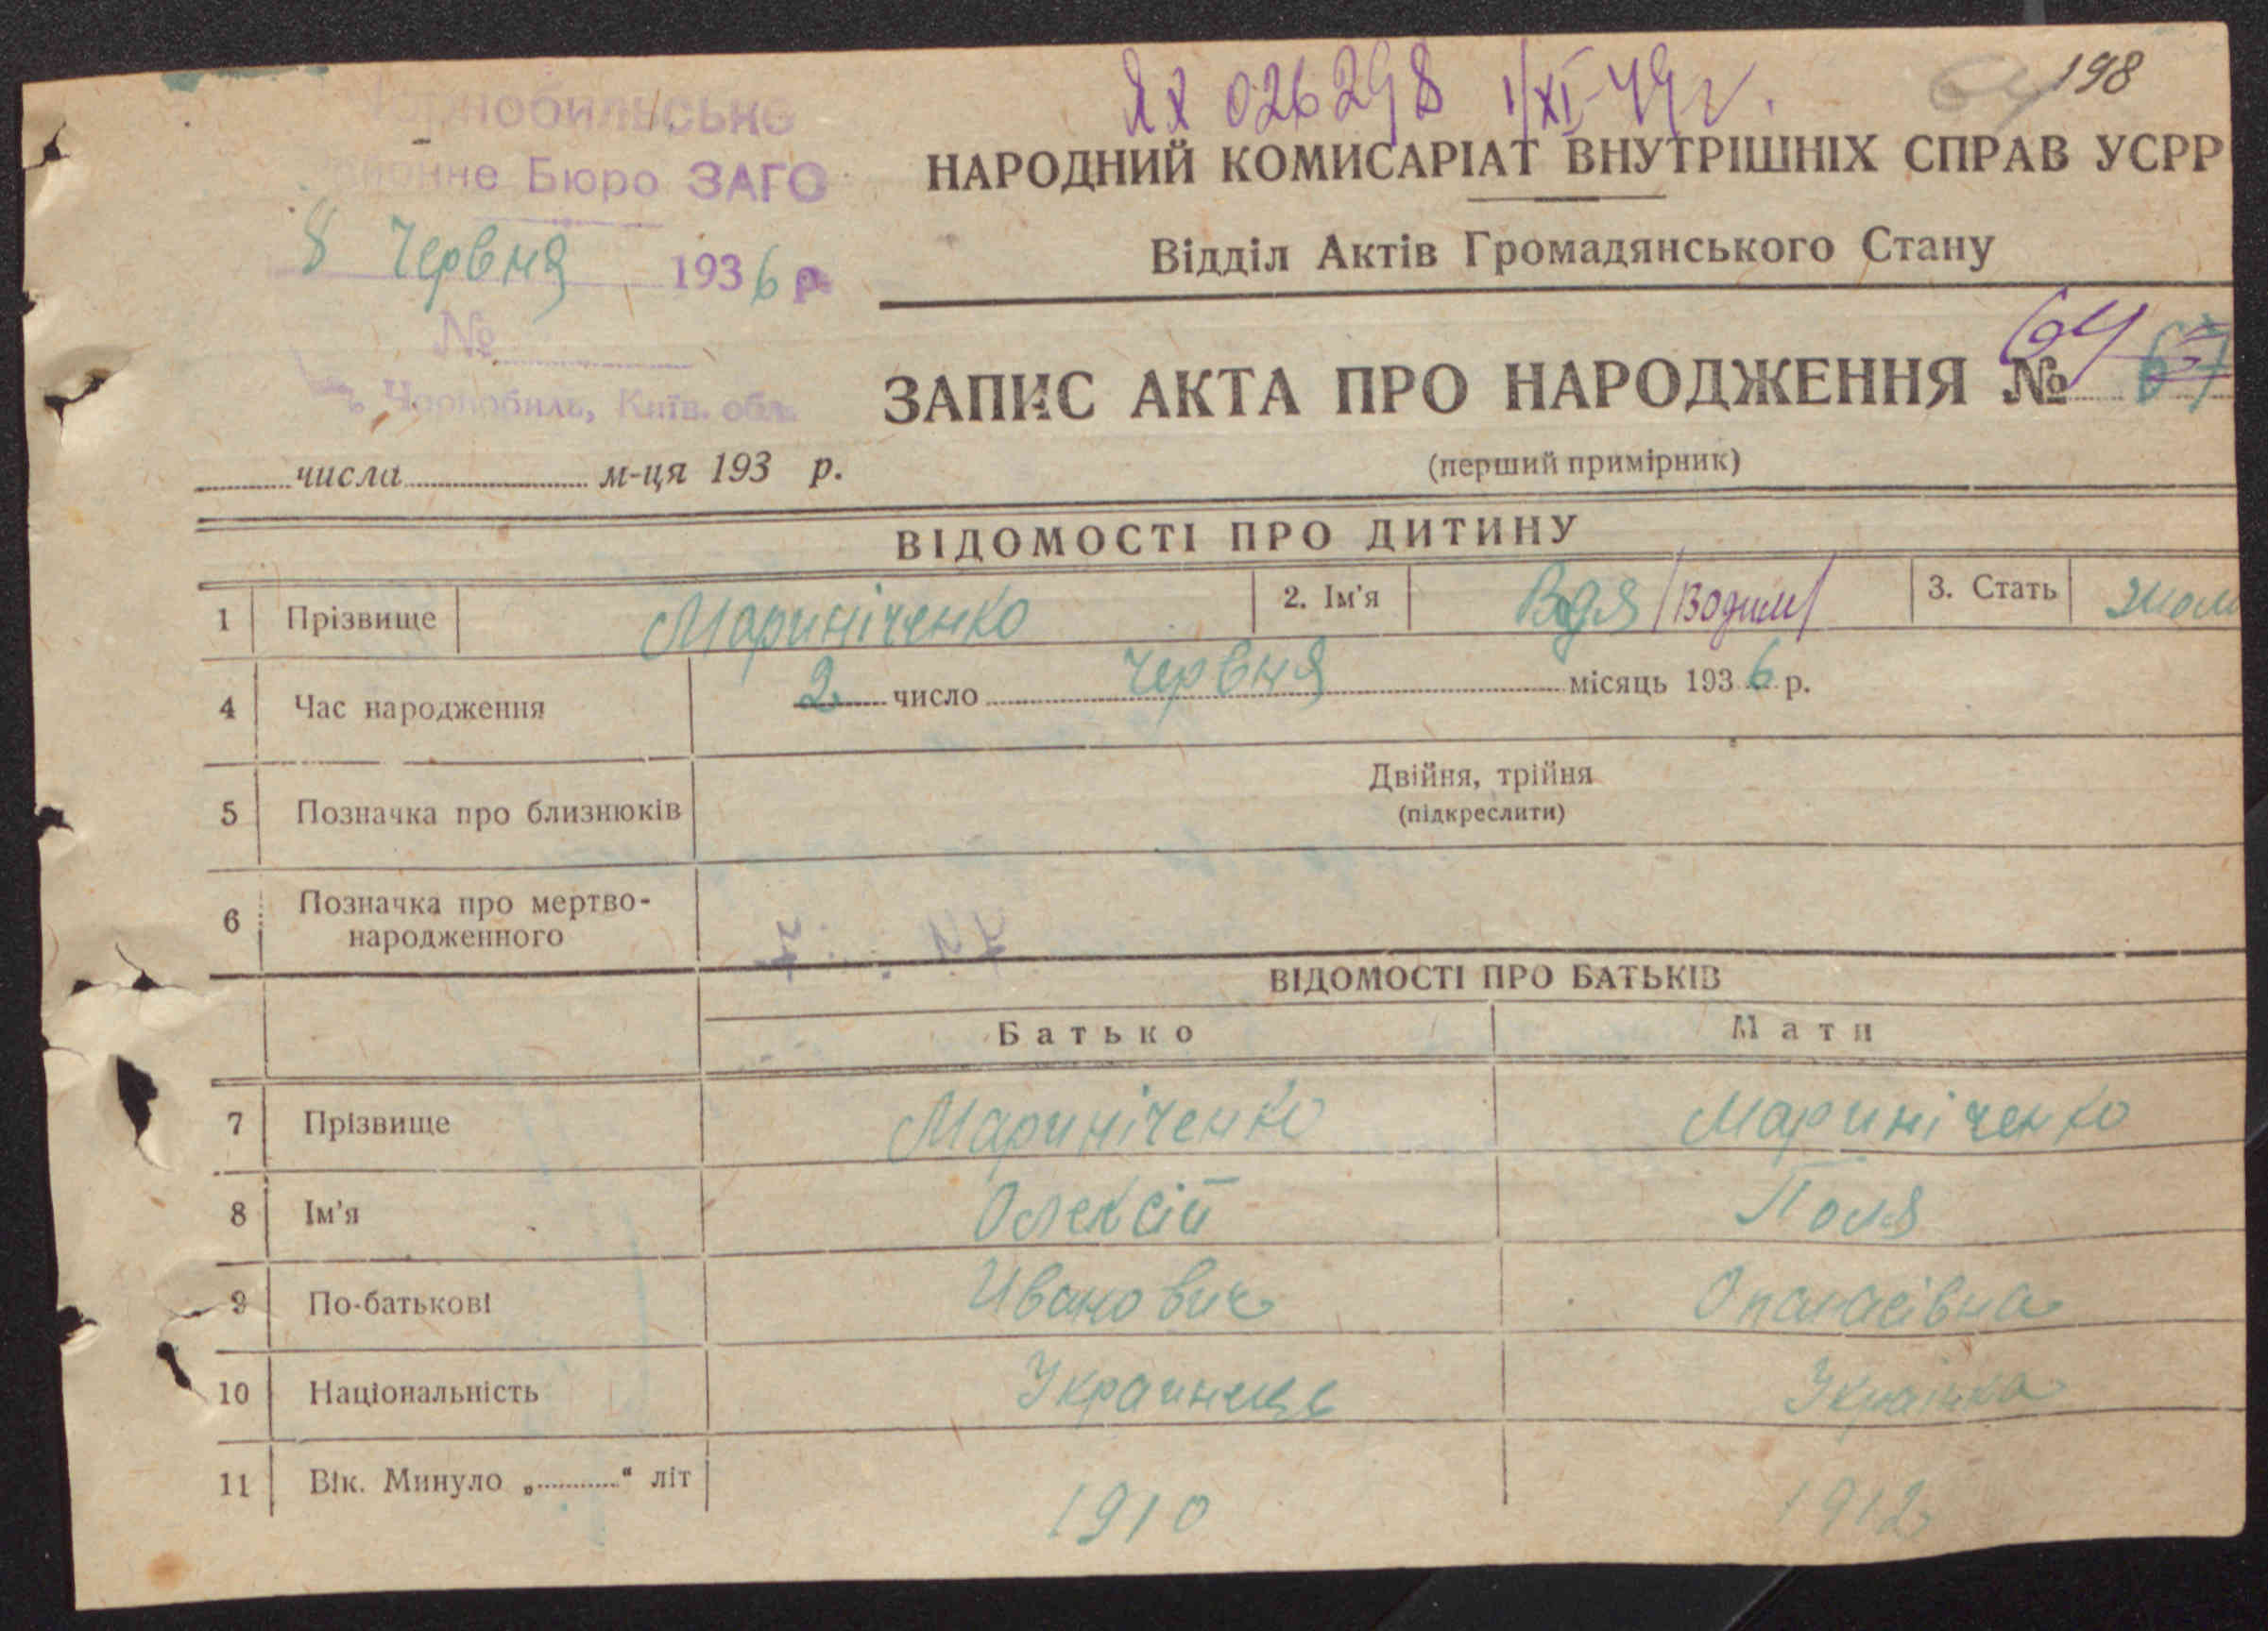 ЯХ 026298 1/XI-49 г.
198
64
Чорнобильське
районне Бюро ЗАГС
8 Червня 1936 р.
№
Чорнобиль, Київ. обл.
НАРОДНИЙ КОМИСАРІАТ ВНУТРІШНІХ СПРАВ УСРР
Відділ Актів Громадянського Стану
ЗАПИС АКТА ПРО НАРОДЖЕННЯ № 64
(перший примірник)
числа м-ця 193 р.
ВІДОМОСТІ ПРО ДИТИНУ
1 Прізвище Мариніченко 2. Ім'я Вадя /Вадим/ 3. Стать
4 Час народження 2 число червня місяць 1936 р.
5 Позначка про близнюків Двійня, трійня
(підкреслити)
6 Позначка про мертво-
народженного
ВІДОМОСТІ ПРО БАТЬКІВ
Батько Мати
7 Прізвище Мариніченко Мариніченко
8 Ім'я Олексій Поля
9 По-батькові Иванович Опанасівна
10 Національність Украинець Українка
11 Вік. Минуло „ “ літ 1910 1912